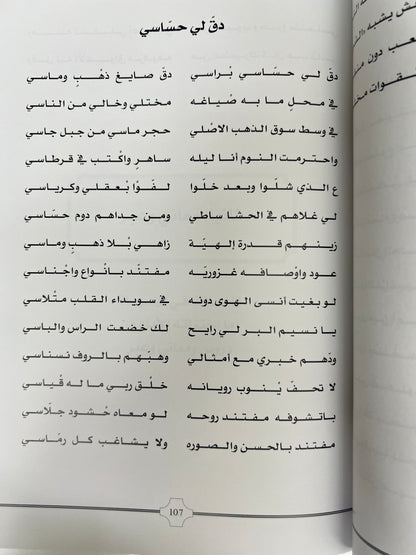 دقّ لي حسَاسي
دق لي حسَاسي بْراسي دقّ صايغ ذهْبٍ وماسي
في محلٍ ما به صْياغه مختلي وخالي من الناسي
في وسط سوق الذهب الاصْلي حجر ماسي من جبل جاسي
واحترمت النوم أنا ليله ساهرٍ واكْتب في قرطاسي
ع الذي شلّوا وبعد خلّوا لفّوا بْعقلي وكرياسي
لي غلاهم في الحشا ساطي ومن جداهم دوم حسَاسي
زينهم قدرة إلهيّة زاهي بْلا ذهبٍ وماسي
عود واوْصافه غزوريّه مفتندٍ بانْواع واجْناسي
لو بغيت أنسى الهوى دونه في سويداء القلب متْلاسي
يا نسيم البر لي رايح لك خضعت الراس والباسي
ودّهم خبري مع أمثالي وهبّهم بالروف نسناسي
لا تحفّ يْنوب رويانه خلْق ربي ما له قْياسي
باتْشوفه مفتند روحه لو معاه حْشود جلّاسي
مفتند بالحسن والصوره ولا يشاغب كل رمّاسي
107